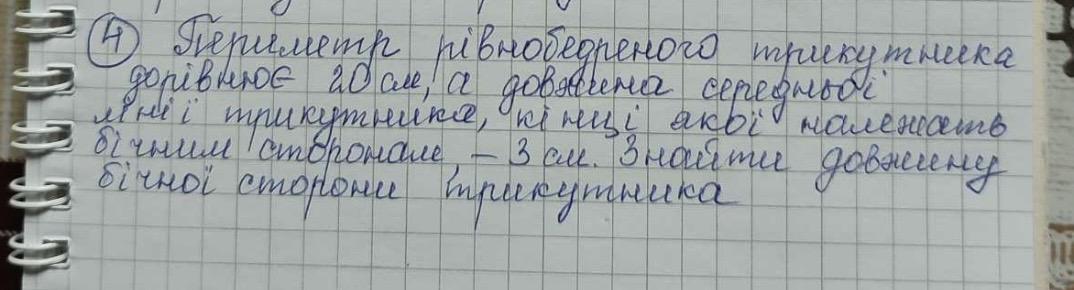 4 Периметр рівнобедреного трикутника
дорівнює 20 см, а довжина середньої
лінії трикутника, кінці якої належать
бічним сторонам – 3 см. Знайти довжину
бічної сторони трикутника